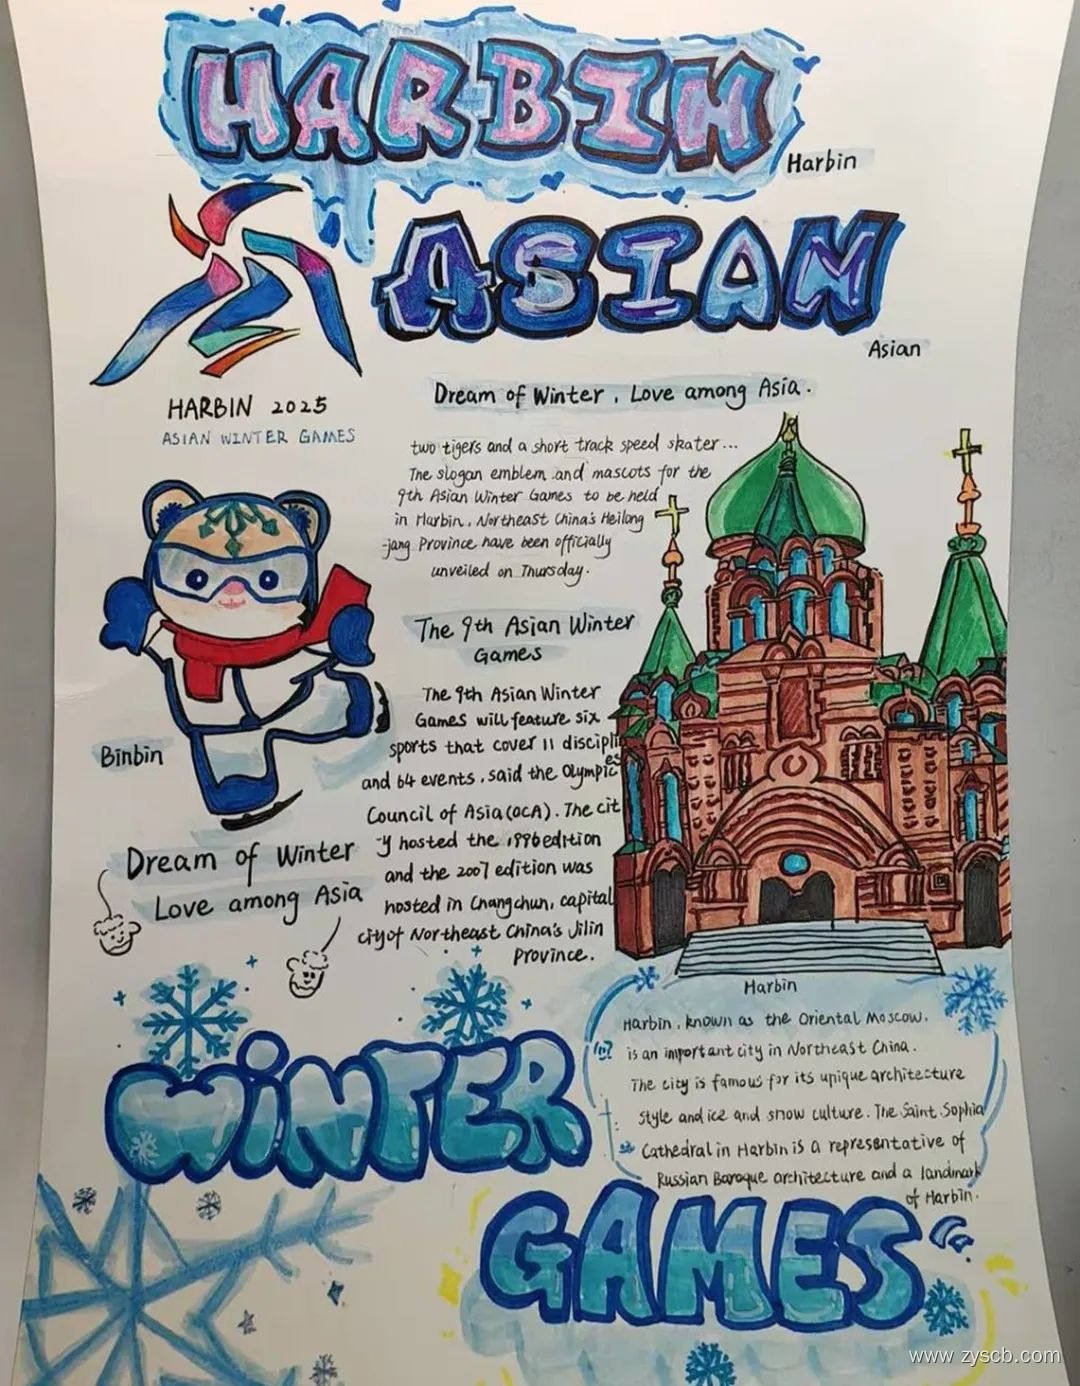 HARBIN
Harbin
ASIAN
Asian
HARBIN 2025
ASIAN WINTER GAMES
Dream of Winter, Love among Asia.
two tigers and a short track speed skater...
The slogan emblem and mascots for the
9th Asian Winter Games to be held
in Harbin, Northeast China's Heilong
-jang Province have been officially
unveiled on Thursday.
The 9th Asian Winter
Games
The 9th Asian Winter
Games will feature six
sports that cover 11 disciplin
es
and 64 events, said the Olympic
Council of Asia (OCA). The cit
-y hosted the 1996 edition
and the 2007 edition was
hosted in Changchun, capital
city of Northeast China's Jilin
Province.
Binbin
Dream of Winter
Love among Asia
Harbin
Harbin, known as the Oriental Moscow.
is an important city in Northeast China.
The city is famous for its unique architecture
style and ice and snow culture. The Saint. Sophia
Cathedral in Harbin is a representative of
Russian Baroque architecture and a landmark
of Harbin.
WiNTER
GAMES
www.zyscb.com